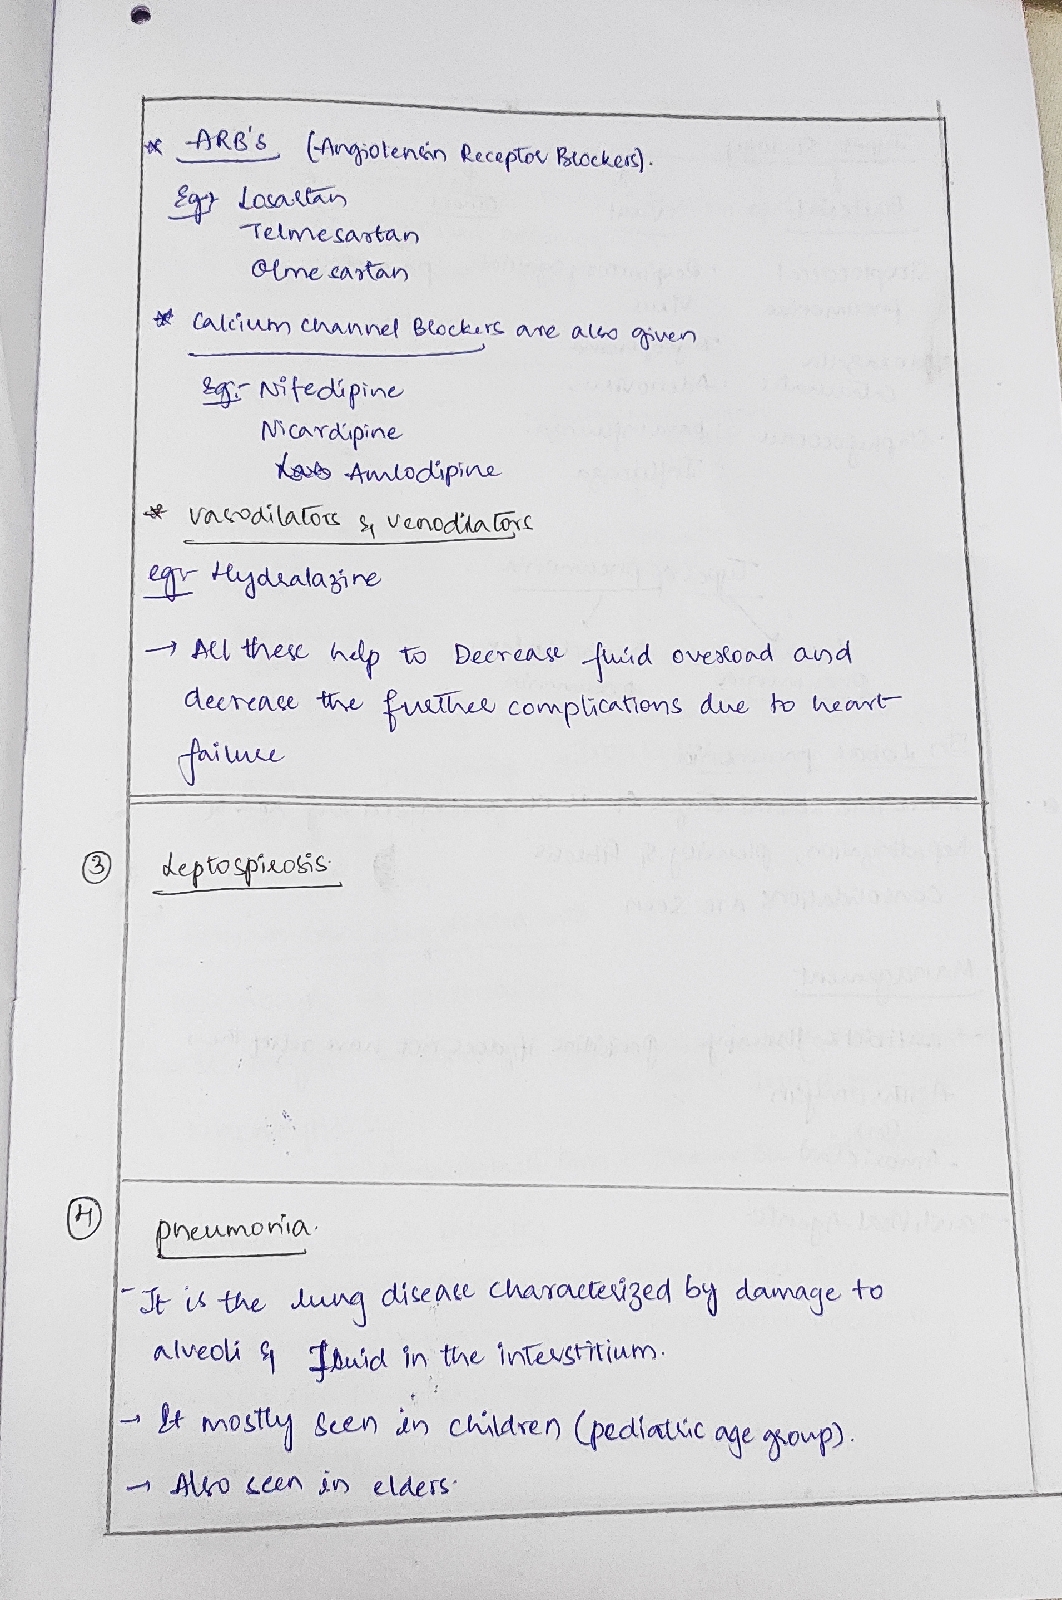 * ARB's (Angiotensin Receptor Blockers).
Eg:- Losartan
Telmesartan
Olmesartan
* Calcium channel Blockers are also given
Eg:- Nifedipine
Nicardipine
Amlodipine
* vasodilators & venodilators
eg:- Hydralazine
→ All these help to Decrease fluid overload and
decrease the further complications due to heart
failure
③ Leptospirosis.
④ pneumonia.
- It is the lung disease characterized by damage to
alveoli & fluid in the interstitium.
→ It mostly seen in children (pediatric age group).
→ Also seen in elders.